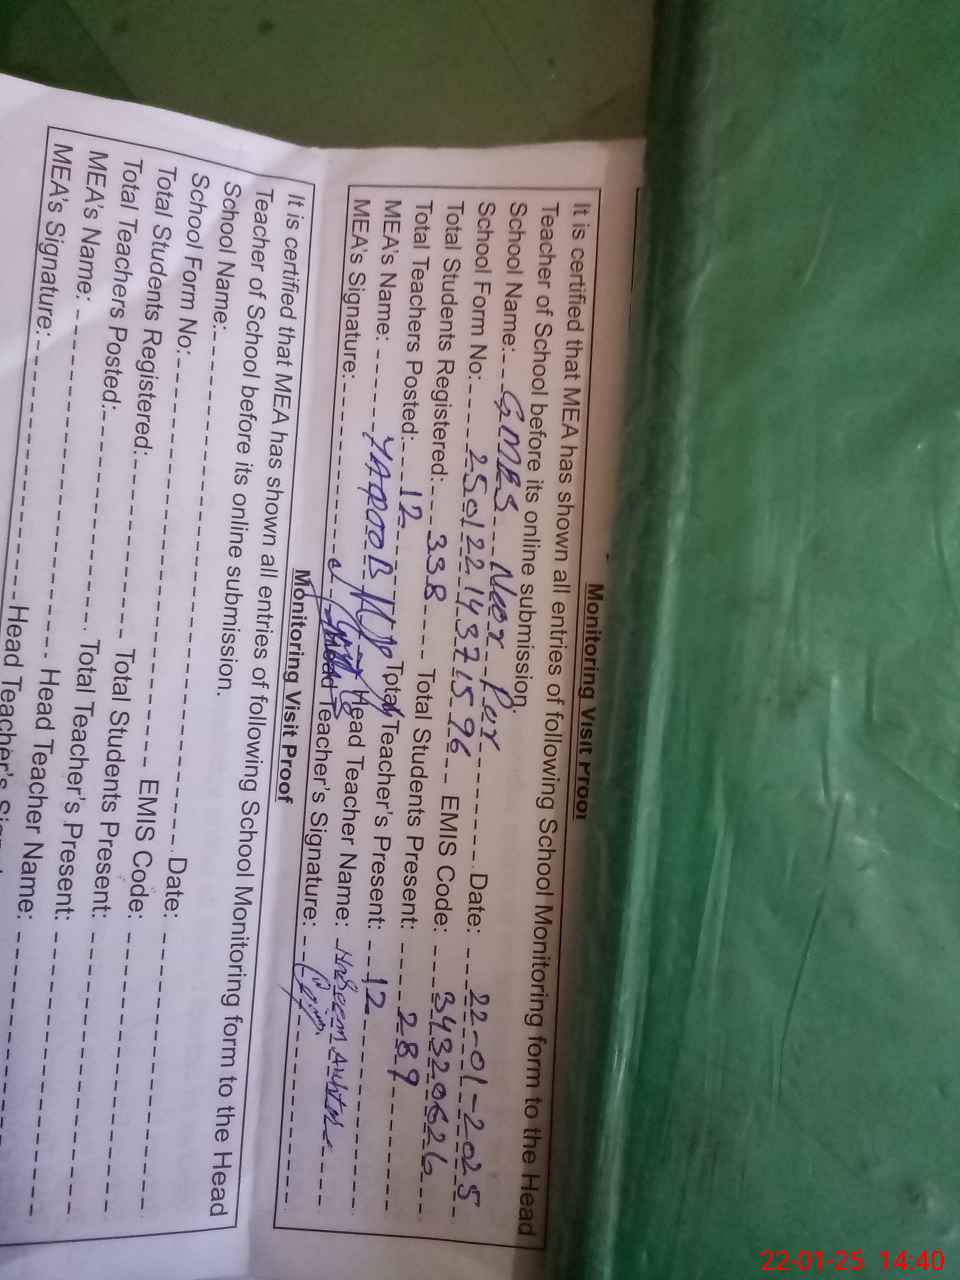 Monitoring Visit Proof
It is certified that MEA has shown all entries of following School Monitoring form to the Head
Teacher of School before its online submission.
School Name: GMES Noor Pur Date: 22-01-2025
School Form No: 25012214371596 EMIS Code: 34320626
Total Students Registered: 338 Total Students Present: 289
Total Teachers Posted: 12 Total Teacher's Present: 12
MEA's Name: YAQOOB Head Teacher Name:
MEA's Signature: Head Teacher's Signature:
Monitoring Visit Proof
It is certified that MEA has shown all entries of following School Monitoring form to the Head
Teacher of School before its online submission.
School Name: Date:
School Form No: EMIS Code:
Total Students Registered: Total Students Present:
Total Teachers Posted: Total Teacher's Present:
MEA's Name: Head Teacher Name:
MEA's Signature: Head Teacher's
22-01-25 14:40